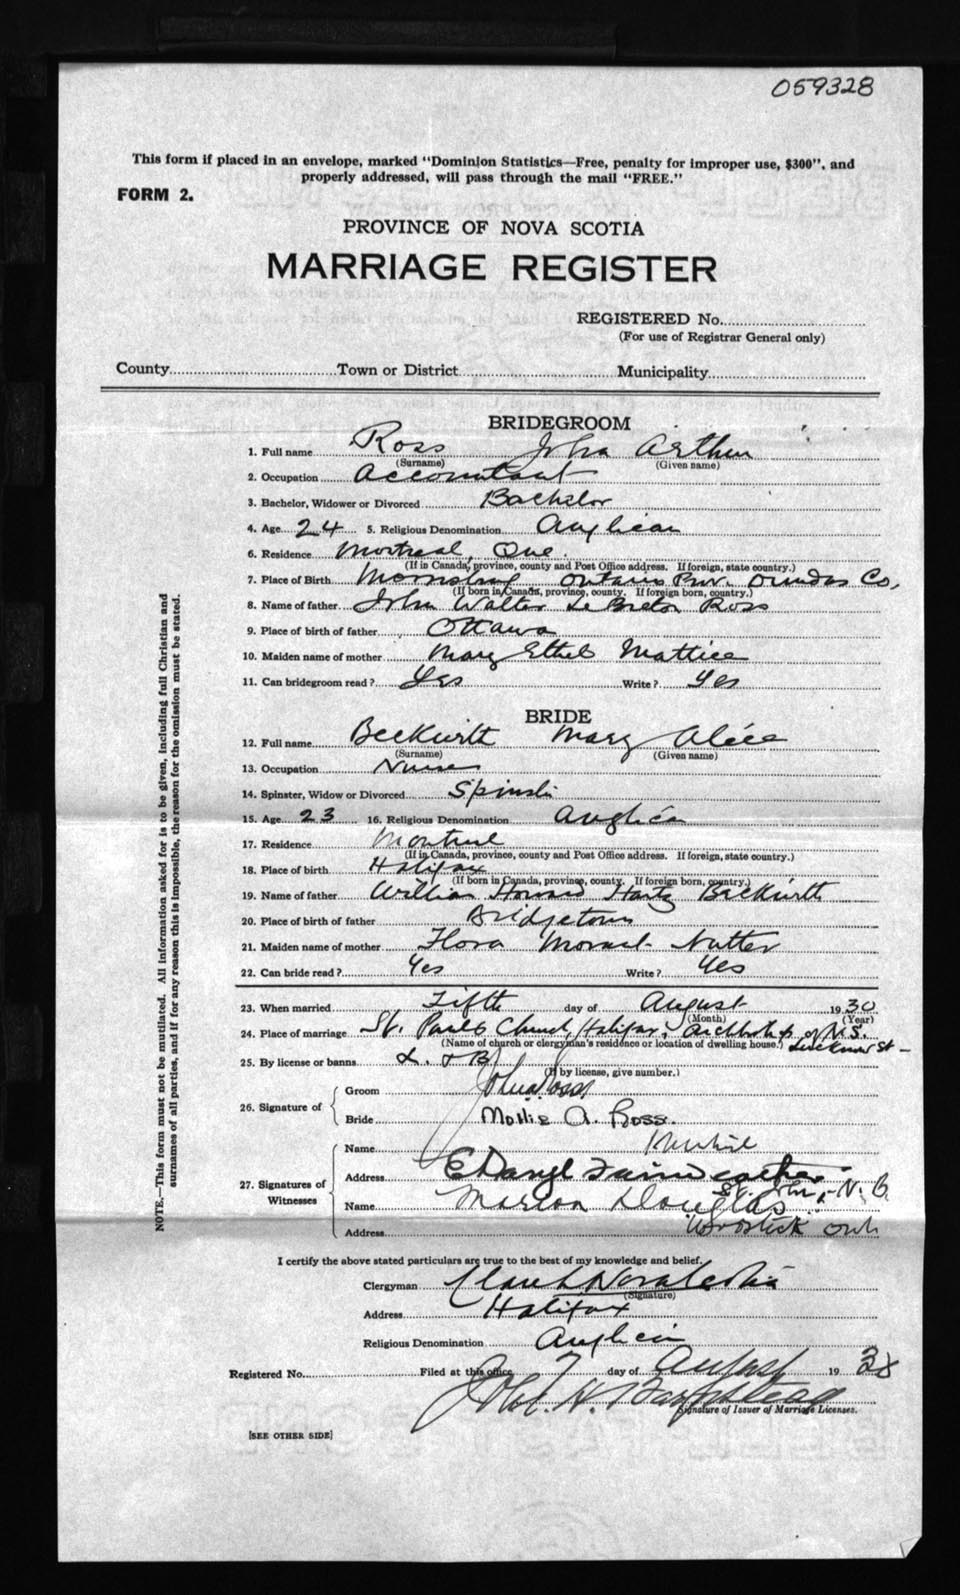 059328
This form if placed in an envelope, marked "Dominion Statistics—Free, penalty for improper use, $300", and
properly addressed, will pass through the mail "FREE."
FORM 2.
PROVINCE OF NOVA SCOTIA
MARRIAGE REGISTER
REGISTERED No.
(For use of Registrar General only)
County Town or District Municipality
BRIDEGROOM
1. Full name Ross John Arthur
(Surname) (Given name)
2. Occupation Accountant
3. Bachelor, Widower or Divorced Bachelor
4. Age 24 5. Religious Denomination Anglican
6. Residence Montreal, Que.
(If in Canada, province, county and Post Office address. If foreign, state country.)
7. Place of Birth Ontario Prov. Dundas Co,
(If born in Canada, province, county. If foreign born, country.)
8. Name of father John Walter Le Breton Ross
9. Place of birth of father Ottawa
10. Maiden name of mother Mary Ethel Mattice
11. Can bridegroom read? Yes Write? Yes
BRIDE
12. Full name Beckwith Mary Alice
(Surname) (Given name)
13. Occupation Nurse
14. Spinster, Widow or Divorced Spinster
15. Age 23 16. Religious Denomination Anglican
17. Residence Montreal
(If in Canada, province, county and Post Office address. If foreign, state country.)
18. Place of birth Halifax
(If born in Canada, province, county. If foreign born, country.)
19. Name of father William Howard Hartz Beckwith
20. Place of birth of father Bridgetown
21. Maiden name of mother Flora Nutter
22. Can bride read? Yes Write? Yes
23. When married Fifth day of August 1930
(Month) (Year)
24. Place of marriage St. Pauls Church, Halifax, Archbishop of N.S.
(Name of church or clergyman's residence or location of dwelling house.)
25. By license or banns L. & B
(If by license, give number.)
26. Signature of
Groom John Ross
Bride Mollie A. Ross.
27. Signatures of Witnesses
Name
Address E Daryl Fairweather St. John, N. B.
Name Marion Douglas
Address Woodstock Ont
I certify the above stated particulars are true to the best of my knowledge and belief.
Clergyman
(Signature)
Address Halifax
Religious Denomination Anglican
Registered No. Filed at this office 7 day of August 19
Signature of Issuer of Marriage Licenses.
[SEE OTHER SIDE]
NOTE.—This form must not be mutilated. All information asked for is to be given, including full Christian and
surnames of all parties, and if for any reason this is impossible, the reason for the omission must be stated.